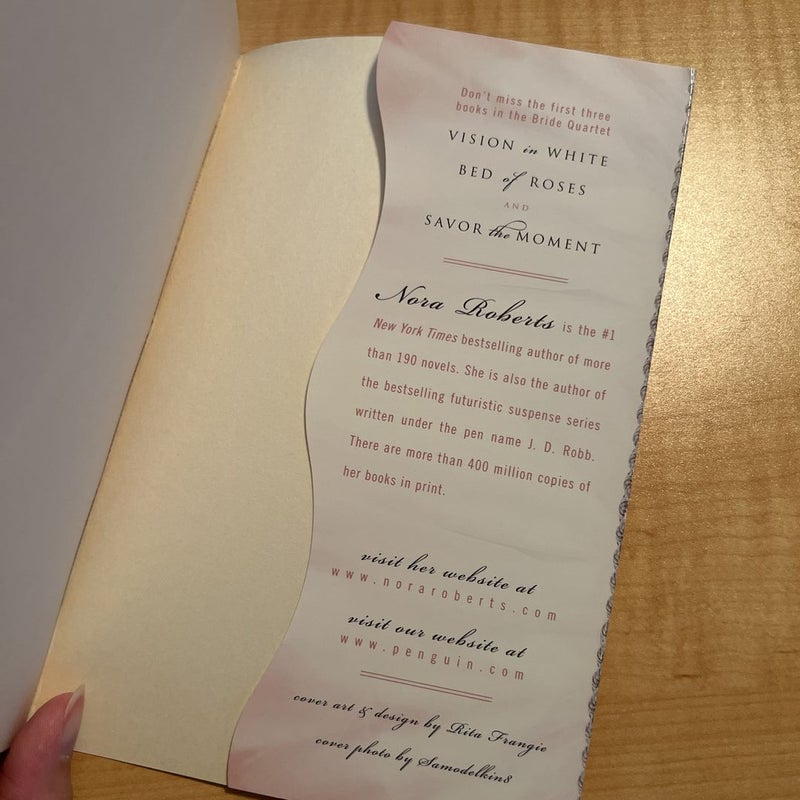 Don't miss the first three
books in the Bride Quartet
VISION in WHITE
BED of ROSES
AND
SAVOR the MOMENT
Nora Roberts is the #1
New York Times bestselling author of more
than 190 novels. She is also the author of
the bestselling futuristic suspense series
written under the pen name J. D. Robb.
There are more than 400 million copies of
her books in print.
visit her website at
www.noraroberts.com
visit our website at
www.penguin.com
cover art & design by Rita Frangie
cover photo by Samodelkin8